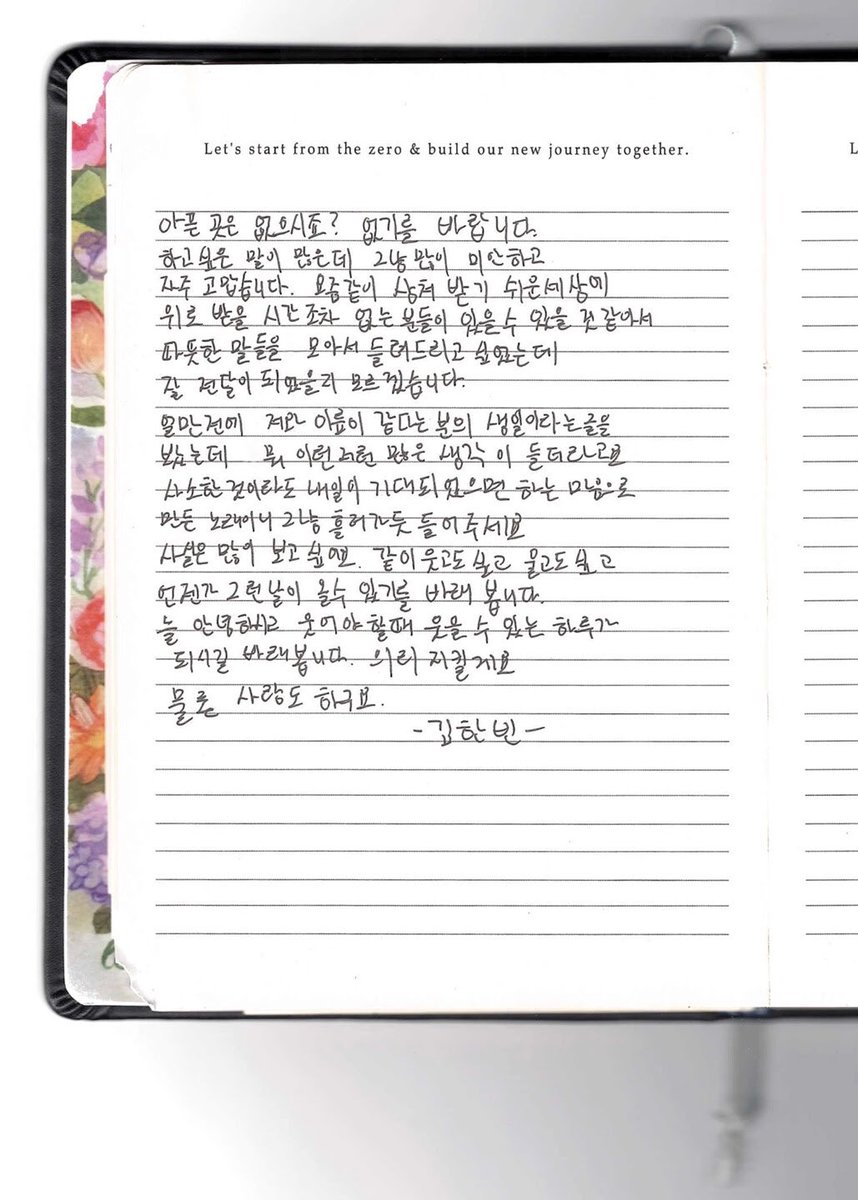 Let's start from the zero & build our new journey together.
L
아픈 곳은 없으시죠? 없기를 바랍니다.
하고싶은 말이 많은데 그냥 많이 미안하고
자주 고맙습니다. 요즘같이 상처 받기 쉬운세상에
위로 받을 시간조차 없는 분들이 있을 수 있을 것 같아서
따뜻한 말들을 모아서 들려드리고 싶었는데
잘 전달이 되었을지 모르겠습니다.
얼만전에 저와 이름이 같다는 분의 생일이라는글을
봤는데 뭐 이런저런 많은 생각이 들더라고요
사소한것이라도 내일이 기대되었으면 하는 마음으로
만든 노래이니 그냥 흘러가듯 들어주세요
사실은 많이 보고싶어요. 같이웃고도싶고 울고도싶고
언젠가 그런날이 올수 있기를 바래 봅니다.
늘 안녕하시고 웃어야할때 웃을 수 있는 하루가
되시길 바래봅니다. 의리 지킬게요
물론 사랑도 하구요.
-김한빈-